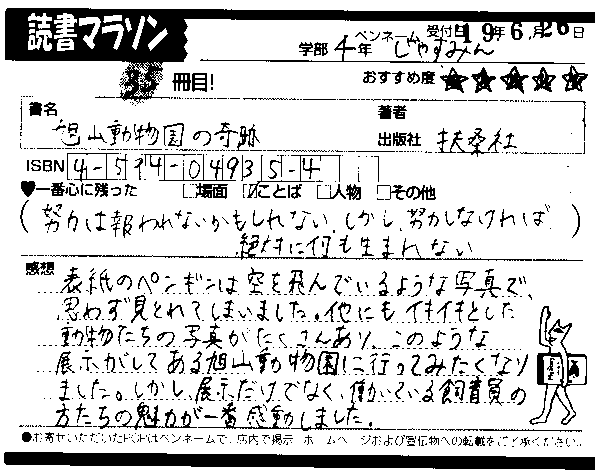 読書マラソン
学部 4年 ペンネーム じゃすみん 受付日 19年6月26日
35冊目! おすすめ度 ★★★★★
書名 旭山動物園の奇跡
著者
出版社 扶桑社
ISBN 4-594-04935-4
♥一番心に残った □場面 ☑ことば □人物 □その他
(努力は報われないかもしれない。しかし、努力しなければ
絶対に何も生まれない)
感想 表紙のペンギンは空を飛んでいるような写真で、
思わず見とれてしまいました。他にもイキイキとした
動物たちの写真がたくさんあり、このような
展示がしてある旭山動物園に行ってみたくなり
ました。しかし、展示だけでなく、働いている飼育員の
方たちの魅力が一番感動しました。
●お寄せいただいたPOPはペンネームで、店内で掲示 ホームページおよび宣伝物への転載をご了承ください。